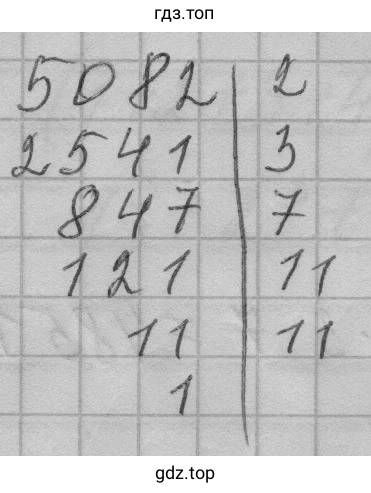 гдз.топ
5082 | 2
2541 | 3
847 | 7
121 | 11
11 | 11
1 |
gdz.top